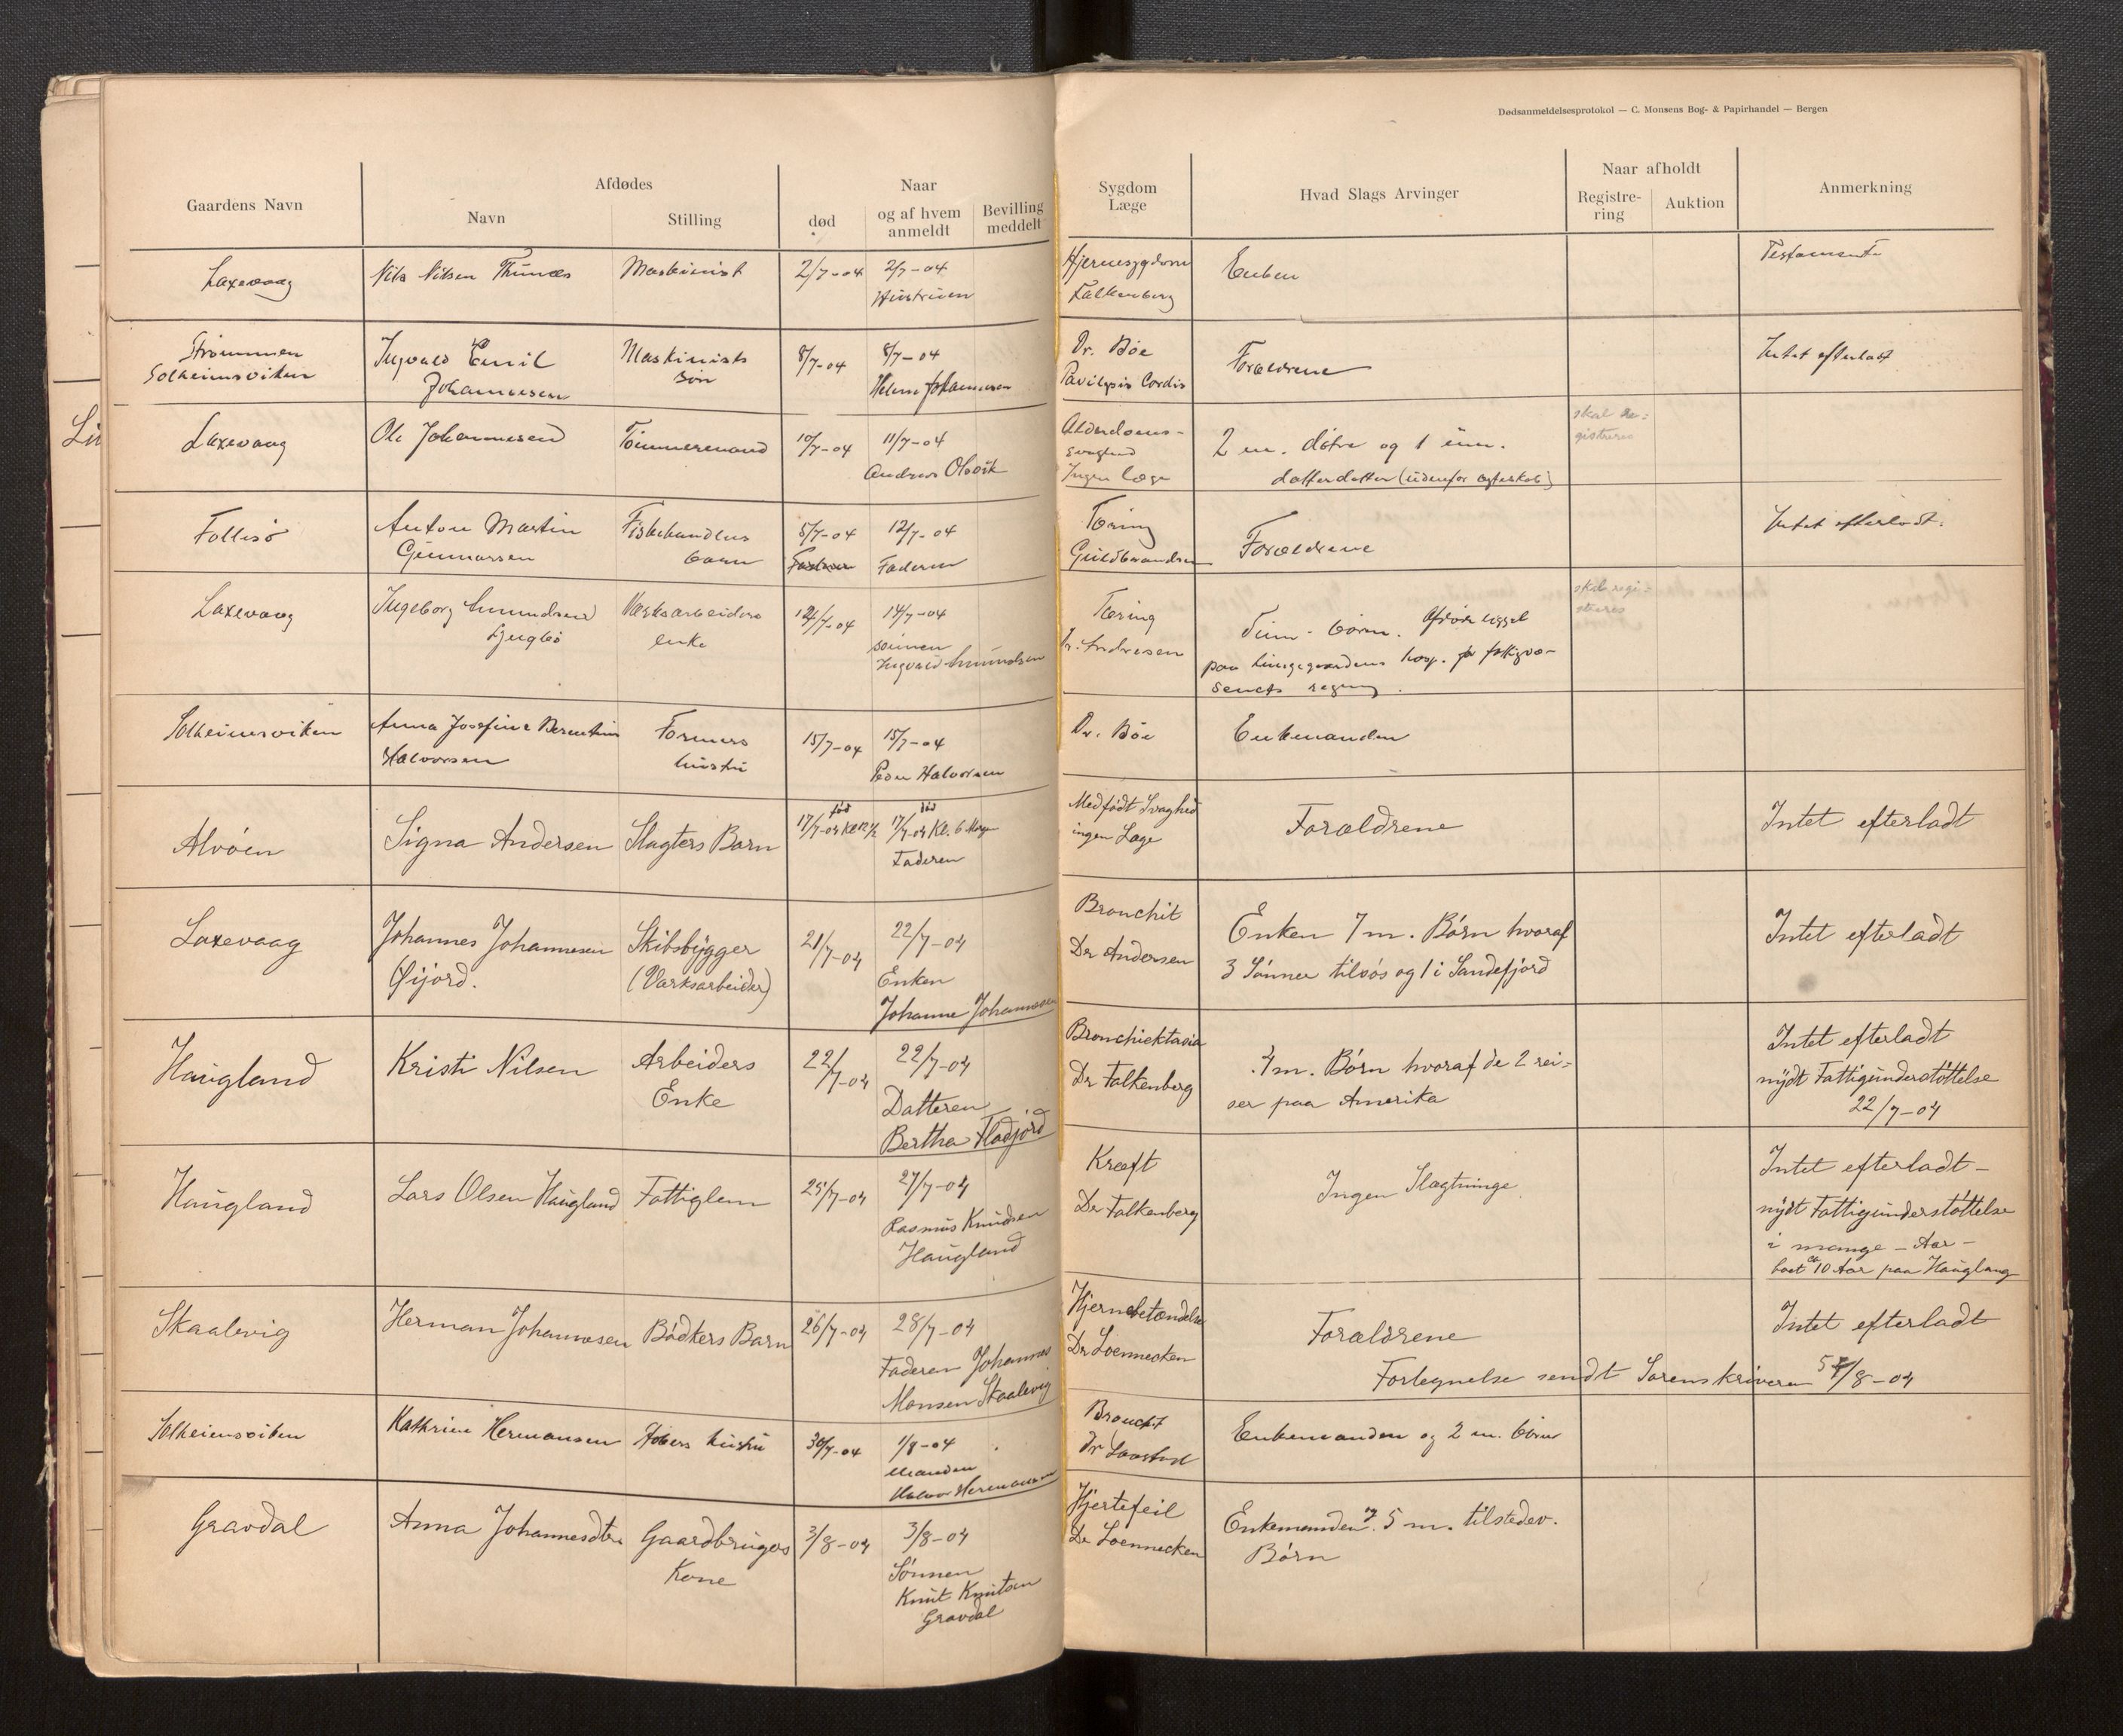 Dødsanmeldelsesprotokol — C. Monsens Bog- & Papirhandel — Bergen
Gaardens Navn
Afdødes
Navn
Stilling
Naar
død
og af hvem anmeldt
Bevilling meddelt
Sygdom
Læge
Hvad Slags Arvinger
Naar afholdt
Registre-
ring
Auktion
Anmerkning
Laxevaag
Nils Nilsen
Maskinist
2/7-04
2/7-04
Hustruen
Hjernesygdom
Falkenberg
Enken
Testamente
Strømmen
Solheimsviken
Ingvald Emil
Johannesen
Maskinists
søn
8/7-04
8/7-04
Johannesen
Dr. Bøe
Cordis
Forældrene
Intet efterladt
Laxevaag
Ole Johannesen
Tømmermand
10/7-04
11/7-04
Andreas Olsvik
Alderdoms-
svaghed
Ingen læge
2 m. døtre og 1 um.
datterdatter (udenfor ægteskab)
skal re-
gistreres
Follesø
Anton Martin
Gunnarsen
Fiskehandlers
barn
5/7-04
12/7-04
Faderen
Tæring
Guldbrandsen
Forældrene
Intet efterladt.
Laxevaag
Ingeborg Amundsen
Værksarbeiders
enke
12/7-04
14/7-04
sønnen
Ingvald Amundsen
Tæring
Dr. Andresen
børn. Afdøde ligget
paa Lungegaardens hosp. for fattigvæ-
senets regning.
skal regi-
streres
Solheimsviken
Anna Josefine Berentine
Halvorsen
Formers
hustru
15/7-04
15/7-04
Peder Halvorsen
Dr. Bøe
Enkemanden
Alvøen
Signa Andersen
Slagters Barn
fød
17/7-04 Kl 12 1/2
død
17/7-04 Kl. 6 Morgen
Faderen
Medfødt Svaghed
ingen Læge
Forældrene
Intet efterladt
Laxevaag
Johannes Johannesen
Øijord.
Skibsbygger
(Værksarbeider)
21/7-04
22/7-04
Enken
Johanne Johannesen
Bronchit
Dr Andersen
Enken 7 m. Børn hvoraf
3 Sønner tilsøs og 1 i Sandefjord
Intet efterladt
Haugland
Kristi Nilsen
Arbeiders
Enke
22/7-04
22/7-04
Datteren
Bertha Fladjord
Bronchiektasia
Dr Falkenberg
4 m. Børn hvoraf de 2 rei-
ser paa Amerika
Intet efterladt
nydt Fattigunderstøttelse
22/7-04
Haugland
Lars Olsen Haugland
Fattiglem
25/7-04
27/7-04
Rasmus Knudsen
Haugland
Kræft
Dr Falkenberg
Ingen Slægtninge
Intet efterladt -
nydt Fattigunderstøttelse
i mange - Aar -
boet ca 10 Aar paa Haugland
Skaalevig
Herman Johannesen
Bødkers Barn
26/7-04
28/7-04
Faderen Johannes
Monsen Skaalevig
Hjernebetændelse
Dr Loennecken
Forældrene
Intet efterladt
Fortegnelse sendt Sorenskriveren 5/8-04
Solheimsviken
Kathrine Hermansen
hustru
30/7-04
1/8-04
Manden
Halvor Hermansen
Bronchit
Enkemanden og 2 m. børn
Gravdal
Anna Johannesdtr
Gaardbrugers
Kone
3/8-04
3/8-04
Sønnen
Knut Knutsen
Gravdal
Hjertefeil
Dr Loennecken
Enkemanden og 5 m. tilstedev.
Børn